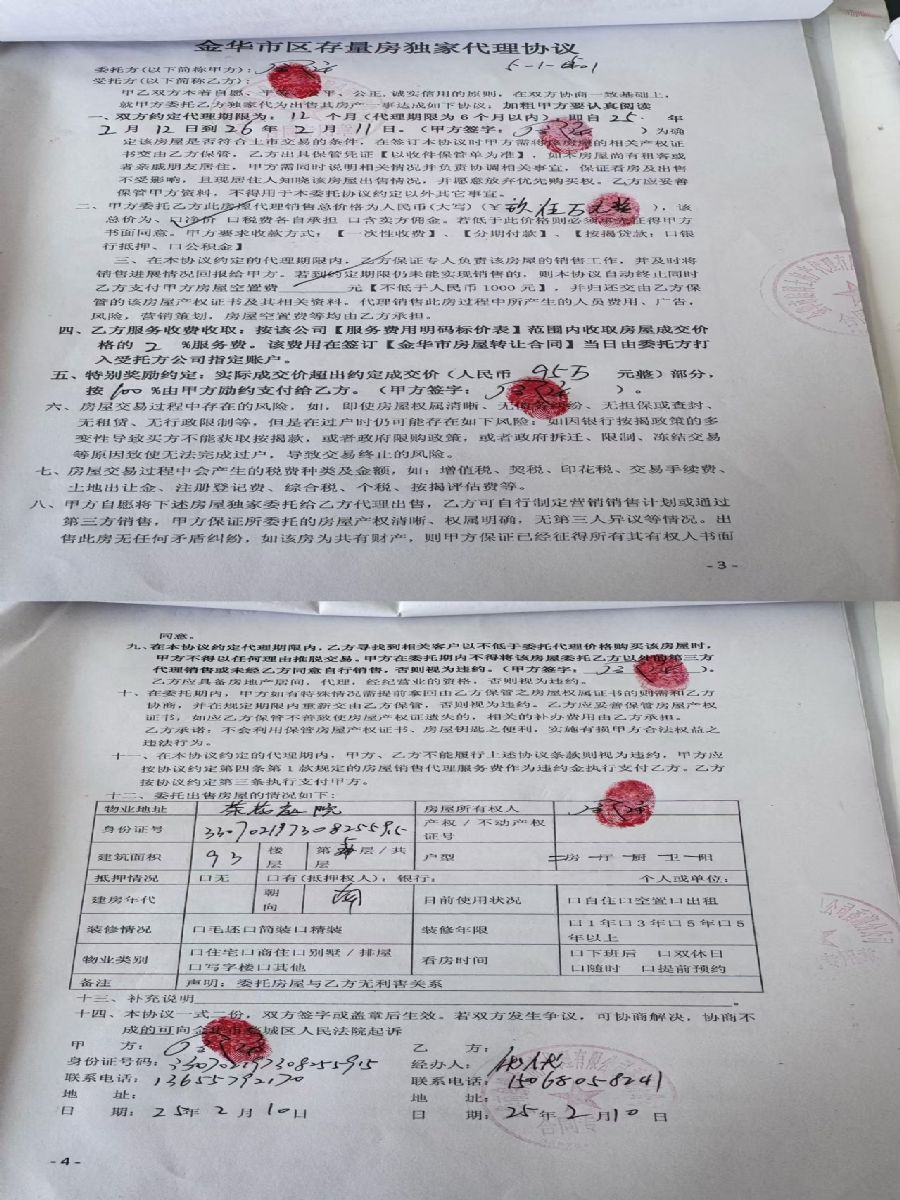 金华市区存量房独家代理协议
委托方(以下简称甲方)：
受托方(以下简称乙方)：
甲乙双方本着自愿、平等、公平、公正,诚实信用的原则，在双方协商一致基础上，
就甲方委托乙方独家代为出售其房产一事达成如下协议：加粗甲方要认真阅读
一、双方约定代理期限为：12个月(代理期限为6个月以内)，即自25.年
2月12日到26年2月11日。（甲方签字： ）为确
定该房屋是否符合上市交易的条件，在签订本协议时甲方需将该房屋的相关产权证
书交由乙方保管，乙方出具保管凭证【以收件保管单为准】，如本房屋尚有租客或
者亲戚朋友居住，甲方需同时说明相关情况并负责协调相关事宜，保证看房及出售
不受影响，且现居住人知晓该房屋出售情况，并愿意放弃优先购买权。乙方应妥善
保管甲方资料，不得用于本委托协议约定以外其它事宜。
二、甲方委托乙方此房屋代理销售总价格为人民币(大写)（¥ ），该
总价为、口净价 口税费各自承担 口含卖方佣金。若低于此价格则必须事先征得甲方
书面同意。甲方要求收款方式：【一次性收费】、【分期付款】、【按揭贷款：口银
行抵押、口公积金】
三、在本协议约定的代理期限内，乙方保证专人负责该房屋的销售工作，并及时将
销售进展情况回报给甲方。若到约定期限仍未能实现销售的，则本协议自动终止同时
乙方支付甲方房屋空置费 元【不低于人民币1000元】，并归还交由乙方保
管的该房屋产权证书及其相关资料。代理销售此房过程中所产生的人员费用、广告，
风险，营销策划，房屋空置费等均由乙方承担。
四、乙方服务收费收取：按该公司【服务费用明码标价表】范围内收取房屋成交价
格的 2 %服务费。该费用在签订【金华市房屋转让合同】当日由委托方打
入受托方公司指定账户。
五、特别奖励约定：实际成交价超出约定成交价（人民币 95万 元整）部分，
按100%由甲方励约支付给乙方。（甲方签字： ）。
六、房屋交易过程中存在的风险，如，即使房屋权属清晰、无债务纠纷、无担保或查封、
无租赁、无行政限制等，但是在过户时仍可能存在如下风险：如因银行按揭政策的多
变性导致买方不能获取按揭款，或者政府限购政策，或者政府拆迁、限制、冻结交易
等原因致使无法完成过户，导致交易终止的风险。
七、房屋交易过程中会产生的税费种类及金额，如：增值税、契税、印花税、交易手续费、
土地出让金、注册登记费、综合税、个税、按揭评估费等。
八、甲方自愿将下述房屋独家委托给乙方代理出售，乙方可自行制定营销销售计划或通过
第三方销售，甲方保证所委托的房屋产权清晰、权属明确，无第三人异议等情况。出
售此房无任何矛盾纠纷，如该房为共有财产，则甲方保证已经征得所有其有权人书面
- 3 -
同意。
九、在本协议约定代理期限内,乙方寻找到相关客户以不低于委托代理价格购买该房屋时，
甲方不得以任何理由推脱交易。甲方在委托期内不得将该房屋委托乙方以外的第三方
代理销售或未经乙方同意自行销售，否则视为违约。（甲方签字： ）。
乙方应具备房地产居间，代理，经纪营业的资格，否则视为违约。
十、在委托期内，甲方如有特殊情况需提前拿回由乙方保管之房屋权属证书的则需和乙方
协商，并在规定期限内重新交由乙方保管，否则视为违约。乙方应妥善保管房屋产权
证书，如应乙方保管不善致使房屋产权证遗失的，相关的补办费用由乙方承担。
乙方承诺：不会利用保管房屋产权证书、房屋钥匙之便利，实施有损甲方合法权益之
违法行为。
十一、在本协议约定的代理期内，甲方、乙方不能履行上述协议条款则视为违约，甲方应
按协议约定第四条第1款规定的房屋销售代理服务费作为违约金执行支付乙方。乙方
按协议约定第三条执行支付甲方。
十二、委托出售房屋的情况如下：
物业地址 房屋所有权人
身份证号 330702197308255915 产权／不动产权证号
建筑面积 93 楼层 第 层／共 层 户型 二房一厅一厨一卫一阳
抵押情况 口无 口有(抵押权人)：银行： 个人或单位：
建房年代 朝向 南 目前使用状况 口自住口空置口出租
装修情况 口毛坯口简装口精装 装修年限 口1年口3年口5年口5年以上
物业类别 口住宅口商住口别墅／排屋口写字楼口其他 看房时间 口下班后 口双休日 口随时 口提前预约
备注 声明：委托房屋与乙方无利害关系
十三、补充说明 。
十四、本协议一式二份，双方签字或盖章后生效。若双方发生争议，可协商解决，协商不
成的可向金华市婺城区人民法院起诉
甲 方： 乙 方：
身份证号码：330702197308255915 经办人：
联系电话：13655792170 联系电话：15068058241
地 址： 地 址：
日 期：25年2月10日 日 期：25年2月10日
- 4 -